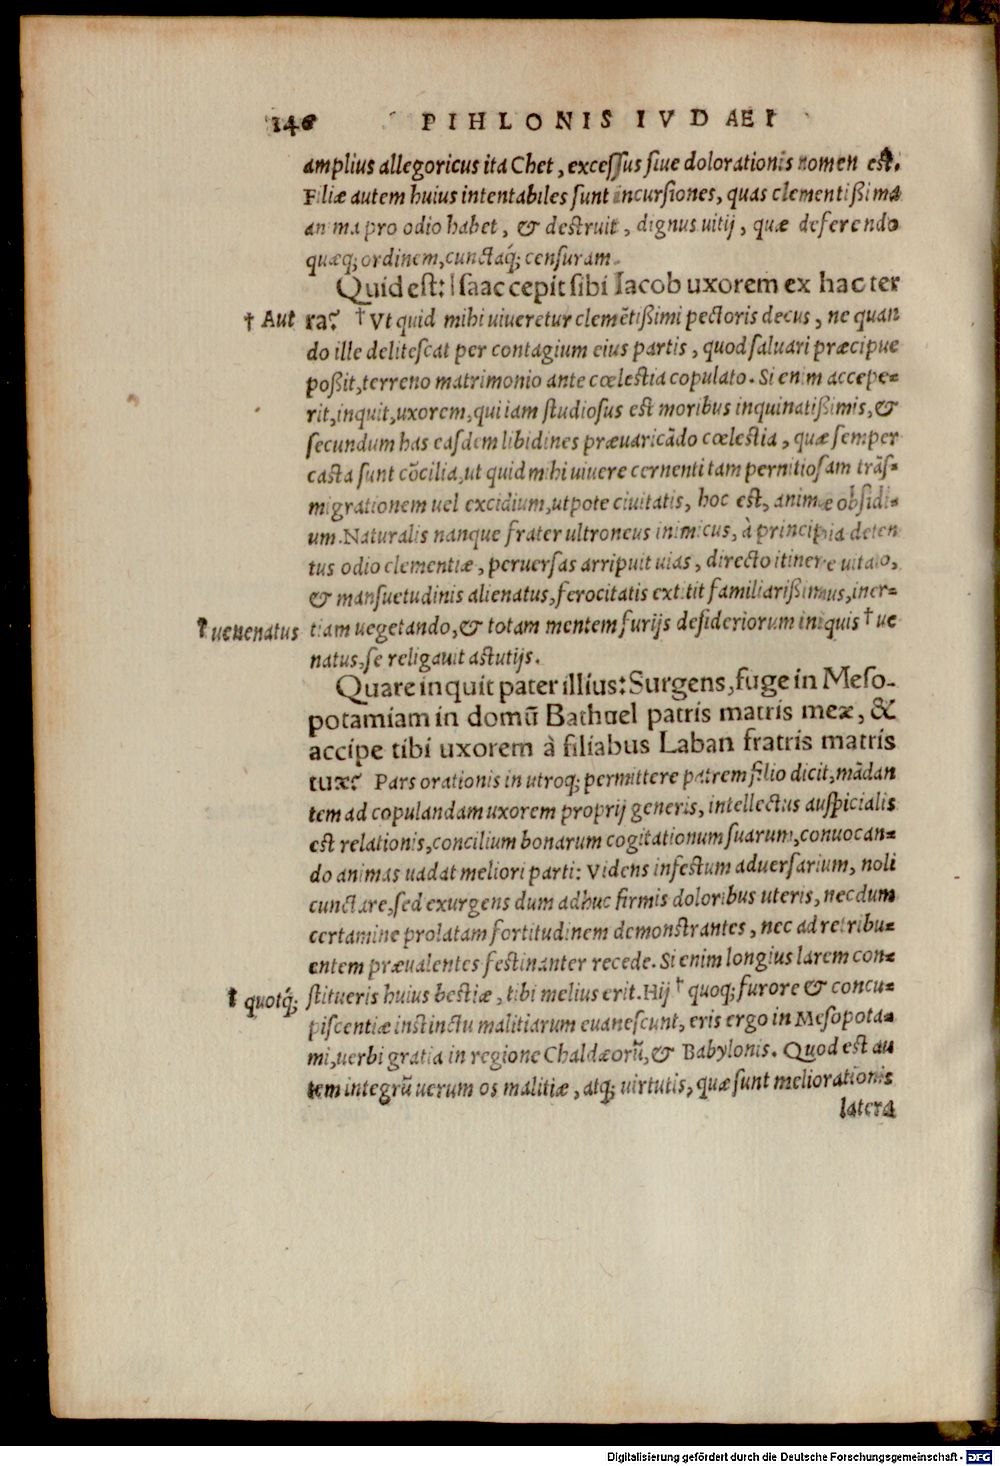 146 PIHLONIS IVDAEI
amplius allegoricus ita Chet, excessus siue dolorationis nomen est.
Filiæ autem huius intentabiles sunt incursiones, quas clementißima
anima pro odio habet, & destruit, dignus uitij, quæ deferendo
quæq; ordinem, cunctaq́; censuram.
Quid est: Isaac cepit sibi Iacob uxorem ex hac ter
† Aut ra? † Vt quid mihi uiueretur clemẽtißimi pectoris decus, ne quan
do ille delitescat per contagium eius partis, quod saluari præcipue
poßit, terreno matrimonio ante cœlestia copulato. Si enim accepe-
rit, inquit, uxorem, qui iam studiosus est moribus inquinatißimis, &
secundum has easdem libidines præuaricãdo cœlestia, quæ semper
casta sunt cõcilia, ut quid mihi uiuere cernenti tam pernitiosam trãs-
migrationem uel excidium, utpote ciuitatis, hoc est, animæ obsidi-
um. Naturalis nanque frater ultroneus inimicus, à principia deten
tus odio clementiæ, peruersas arripuit uias, directo itinere uitato,
& mansuetudinis alienatus, ferocitatis extitit familiarißimus, iner-
† uenenatus tiam uegetando, & totam mentem furijs desideriorum iniquis † ue
natus, se religauit astutijs.
Quare inquit pater illius: Surgens, fuge in Meso-
potamiam in domũ Bathuel patris matris meæ, &
accipe tibi uxorem à filiabus Laban fratris matris
tuæ? Pars orationis in utroq; permittere patrem filio dicit, mãdan
tem ad copulandam uxorem proprij generis, intellectus auspicialis
est relationis, concilium bonarum cogitationum suarum, conuocan-
do animas uadat meliori parti: Videns infestum aduersarium, noli
cunctare, sed exurgens dum adhuc firmis doloribus uteris, necdum
certamine prolatam fortitudinem demonstrantes, nec ad retribu-
entem præualentes festinanter recede. Si enim longius larem con-
† quotq́; stitueris huius bestiæ, tibi melius erit. Hij † quoq; furore & concu-
piscentiæ instinctu malitiarum euanescunt, eris ergo in Mesopota-
mi, uerbi gratia in regione Chaldæorũ, & Babylonis. Quod est au
tem integrũ uerum os malitiæ, atq; uirtutis, quæ sunt meliorationis
latera
Digitalisierung gefördert durch die Deutsche Forschungsgemeinschaft - DFG